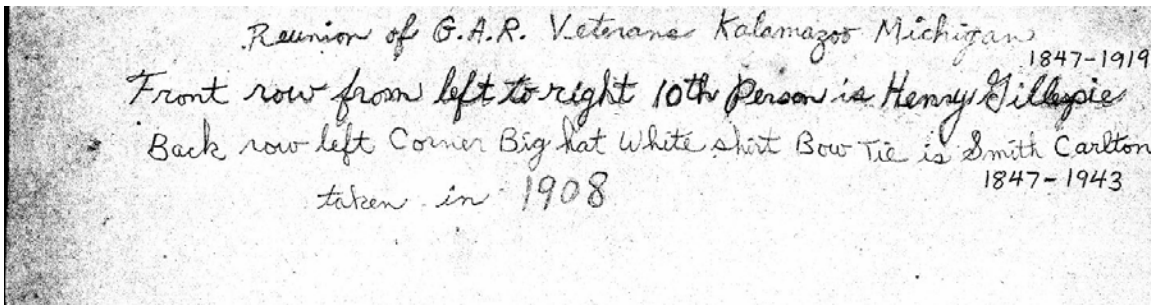 Reunion of G.A.R. Veterans Kalamazoo Michigan
1847-1919
Front row from left to right 10th Person is Henry Gillespie
Back row left Corner Big hat White shirt Bow Tie is Smith Carlton
1847-1943
taken in 1908